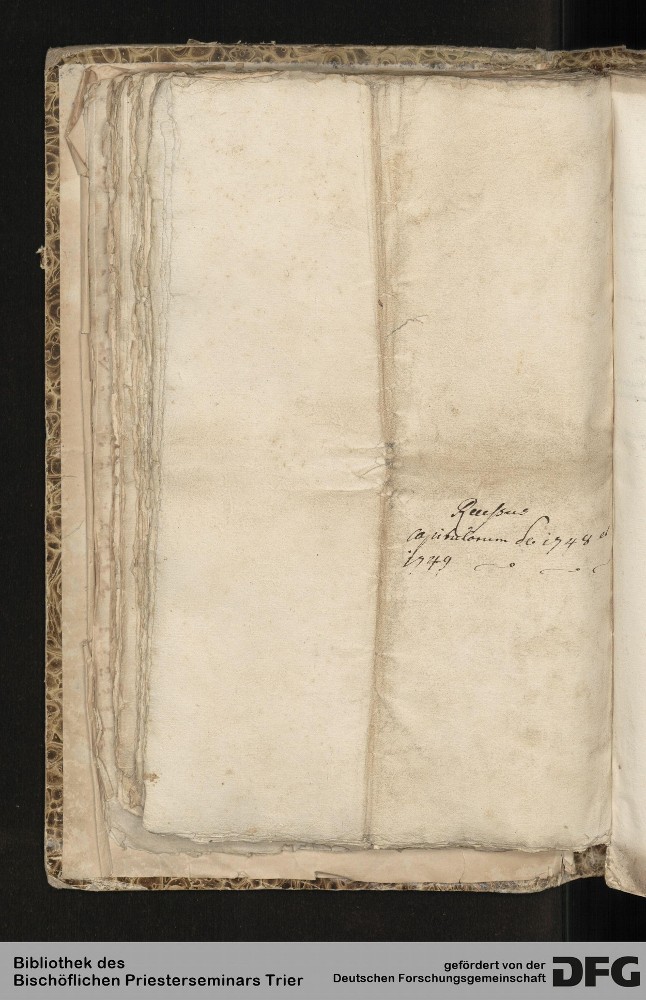 Recessus
capitulorum de 1748 et
1749
Bibliothek des
Bischöflichen Priesterseminars Trier
gefördert von der
Deutschen Forschungsgemeinschaft
DFG